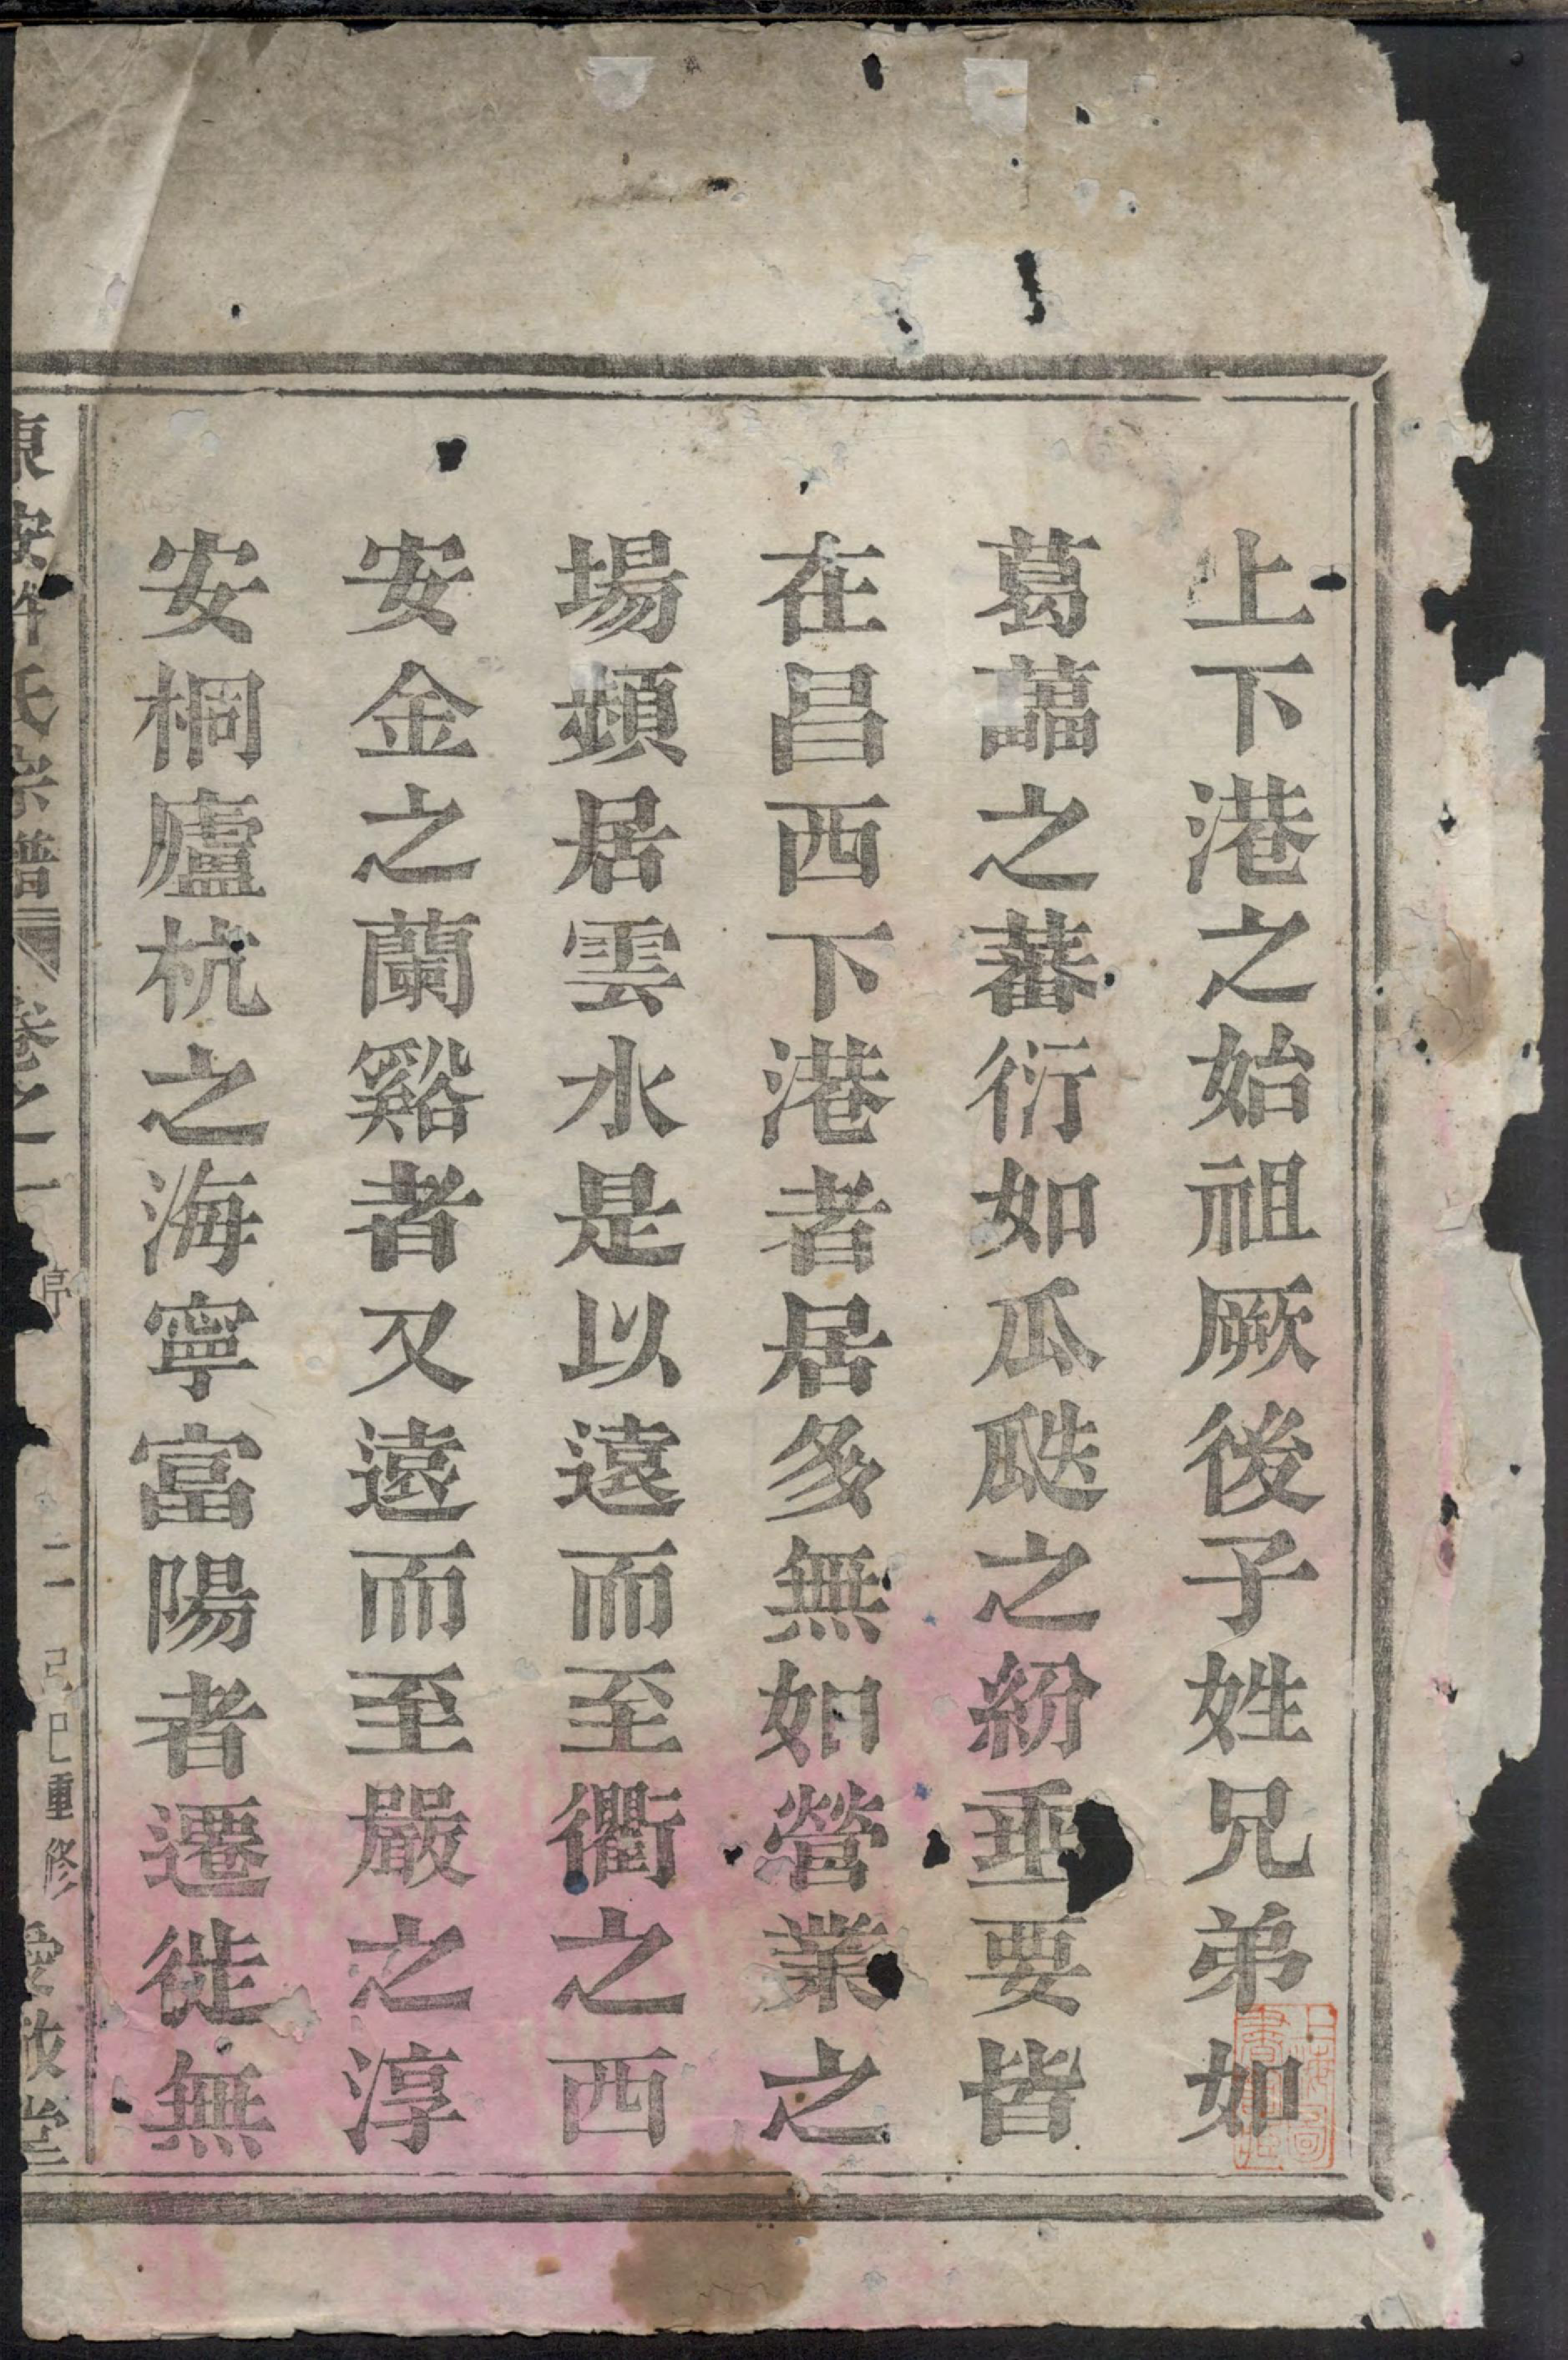 上下港之始祖厥後子姓兄弟如
葛藟之蕃衍如瓜瓞之紛垂要皆
在昌西下港者居多無如營業之
場頻居雲水是以遠而至衢之西
安金之蘭谿者又遠而至嚴之淳
安桐廬杭之海寧富陽者遷徙無
東安許氏宗譜 卷之一 二 己巳重修 愛敬堂